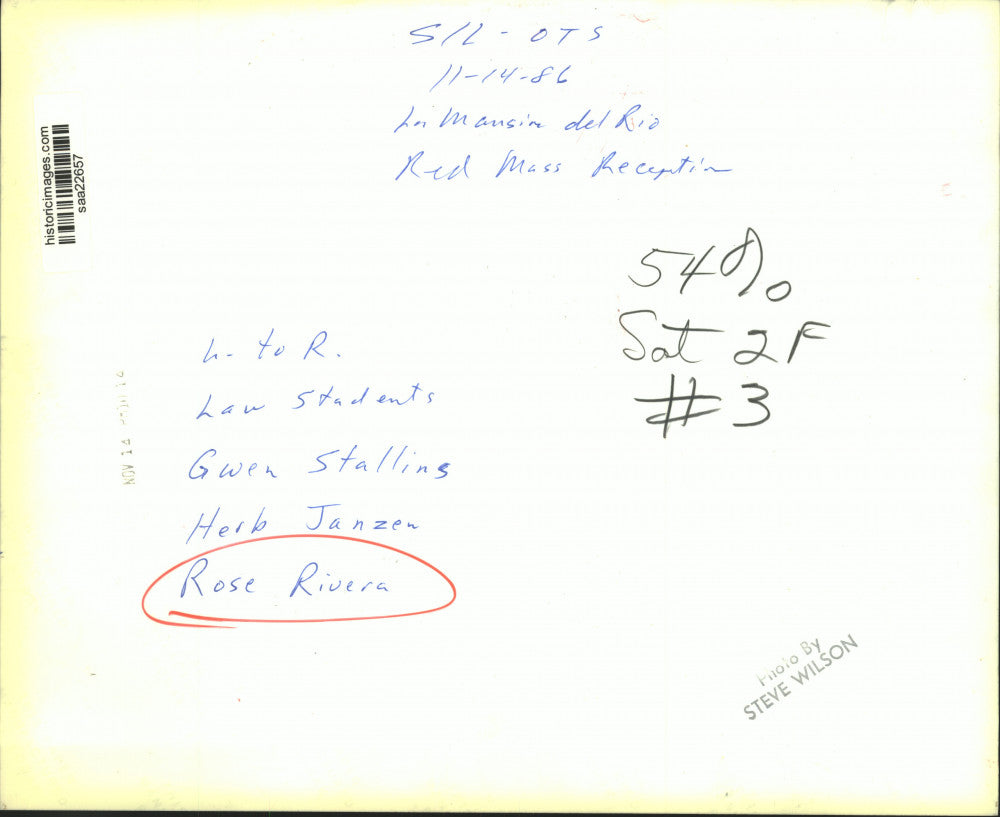 S/L - OTS
11-14-86
La Mansion del Rio
Red Mass Reception
historicimages.com
saa22657
54%
Sat 2F
#3
L. to R.
Law Students
Gwen Stalling
Herb Janzen
Rose Rivera
NOV 14
Photo By
STEVE WILSON